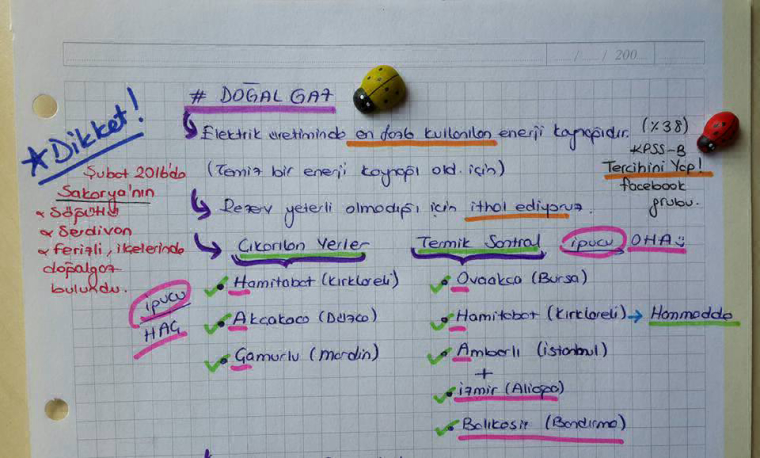 / / 200
# DOĞAL GAZ
Dikket!
Elektrik üretiminde en fazla kullanılan enerji kaynağıdır. (%38)
(Temiz bir enerji kaynağı old. için)
KPSS-B
Tercihini Yap!
facebook
grubu.
Şubat 2016'da
Sakarya'nın
Söğütlü
Serdivan
ferizli, ilçelerinde
doğalgaz
bulundu.
Rezerv yeterli olmadığı için ithal ediyoruz.
Çıkarılan Yerler
Termik Santral ipucu OHA
ipucu
HAG
Hamitabat (Kırklareli)
Akçakoca (Düzce)
Gamurlu (mardin)
Ovaakça (Bursa)
Hamitabat (Kırklareli) → Hammadde
Ambarlı (istanbul)
+
izmir (Aliağa)
Balıkesir (Bandırma)